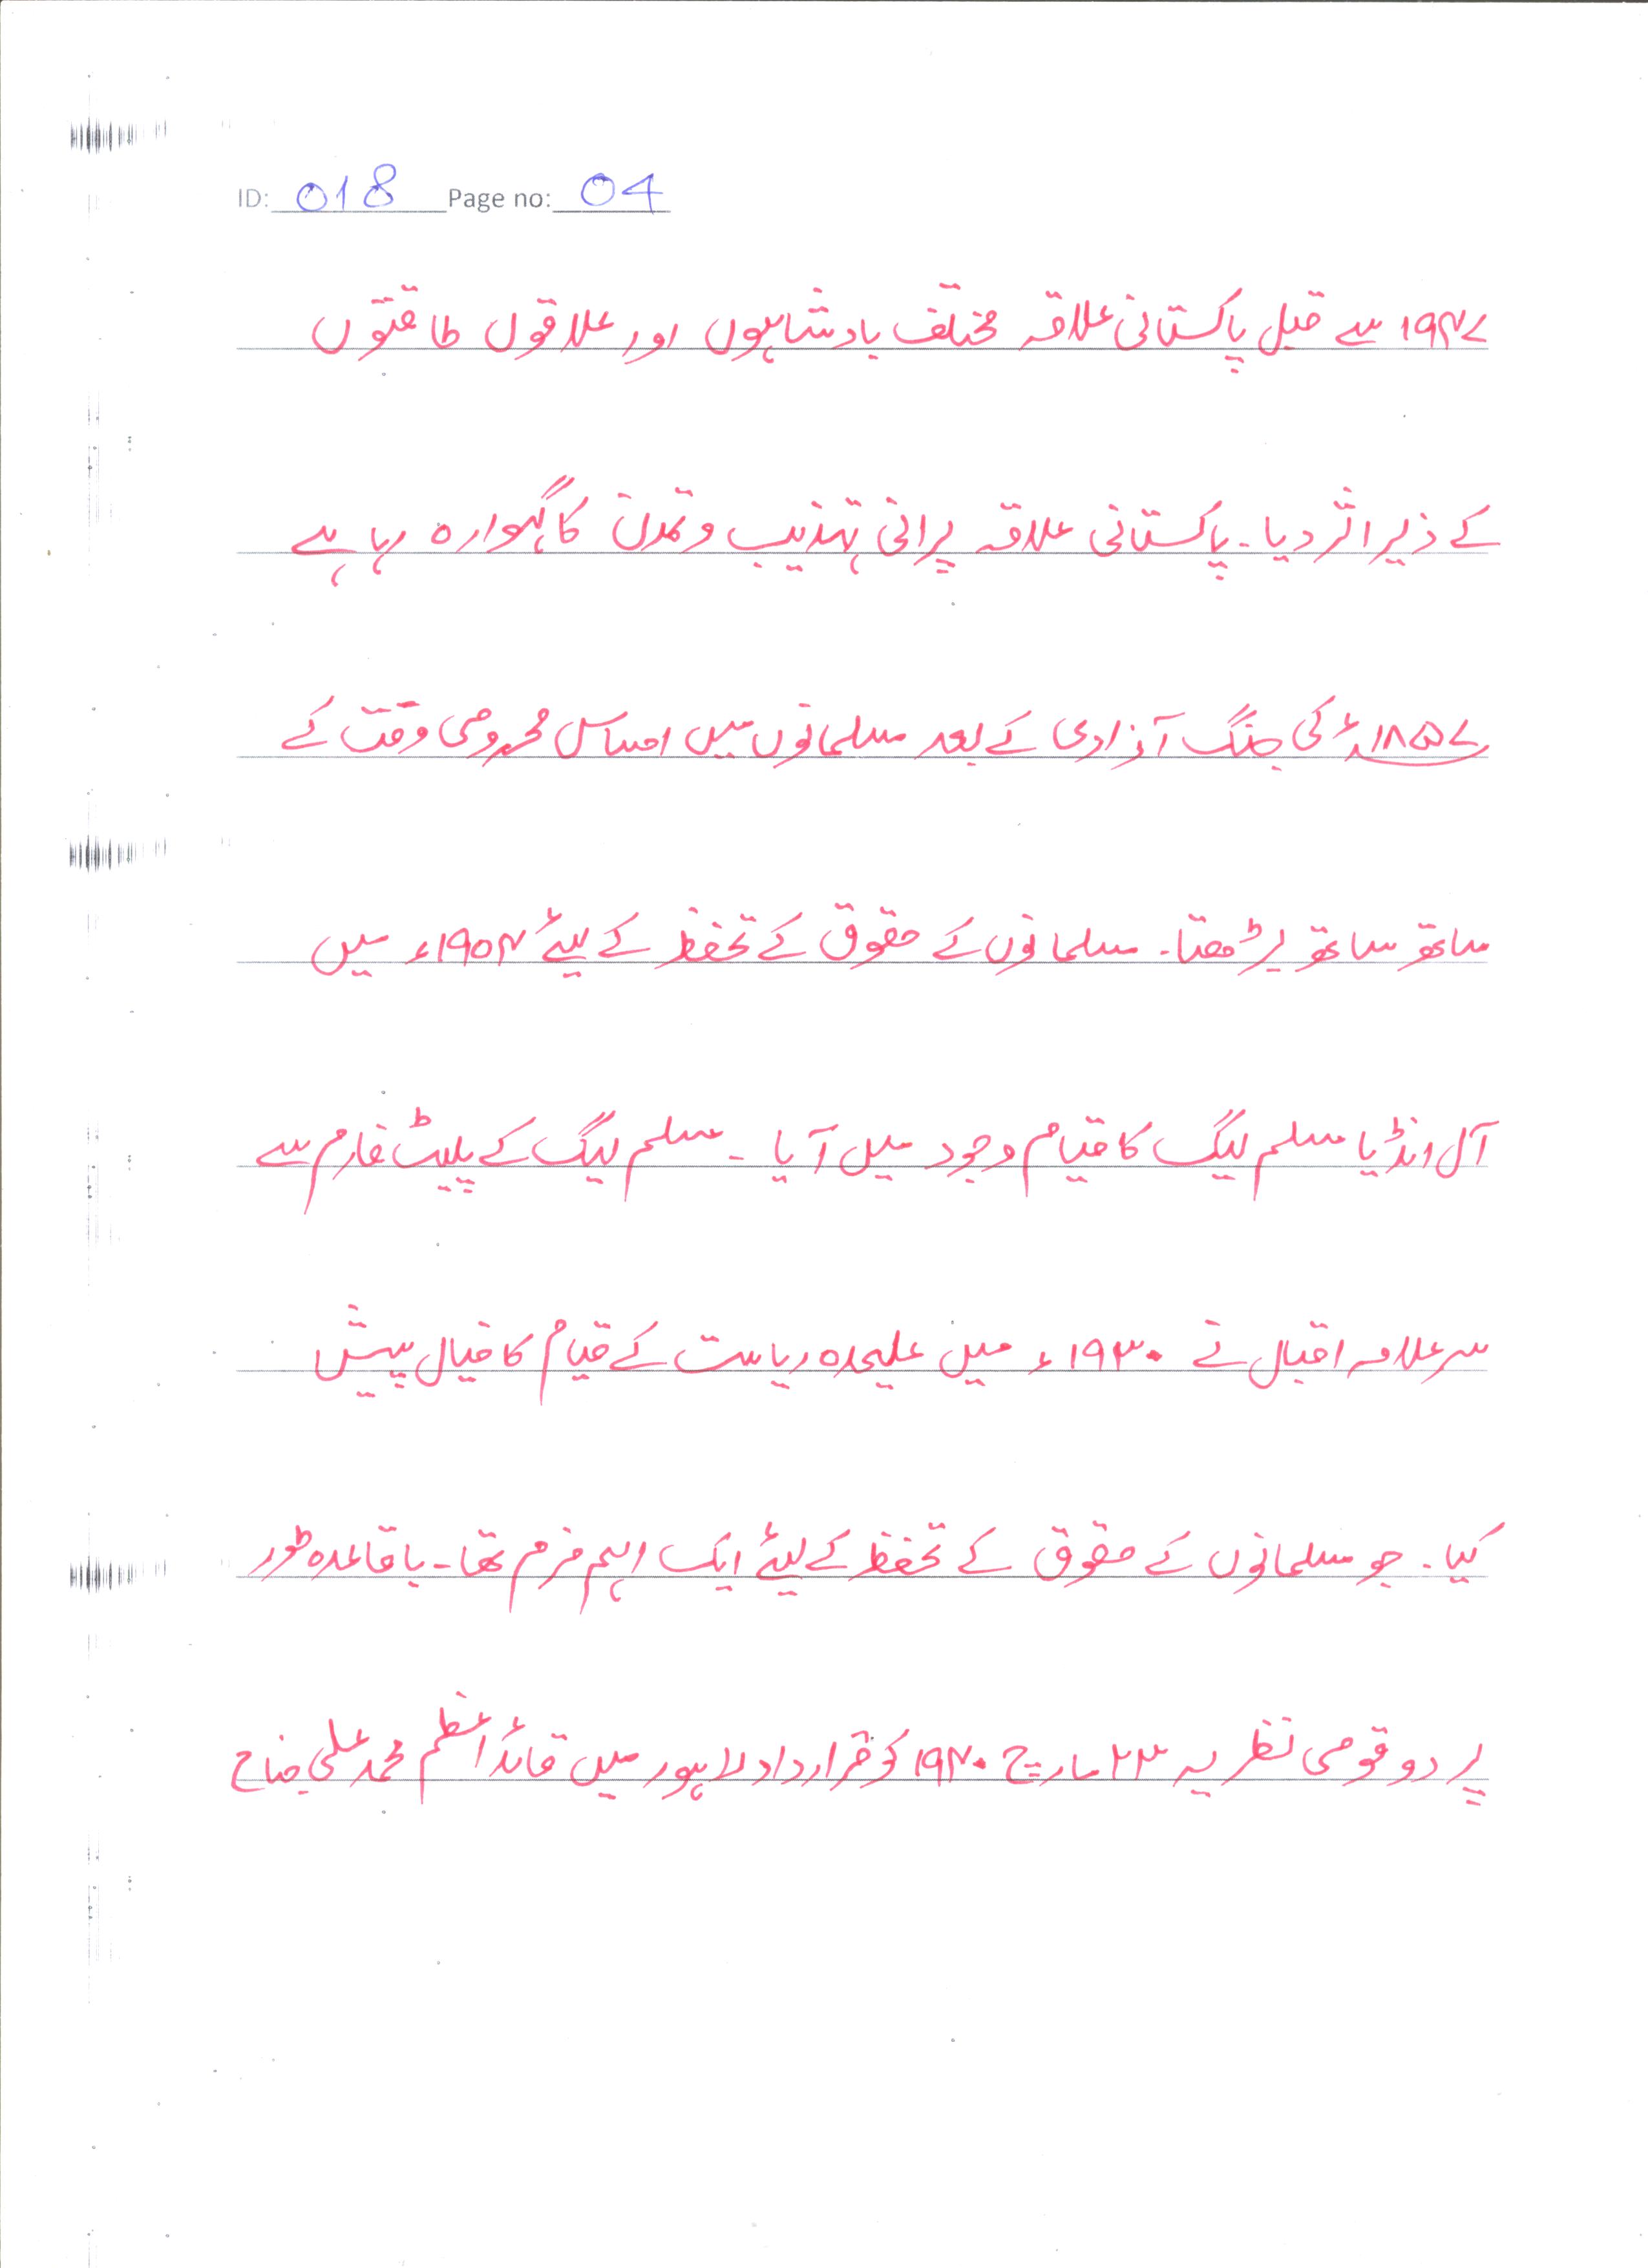 ID: 018 Page no: 04
۱۹۴۷ سے قبل پاکستانی علاقہ مختلف بادشاہوں اور علاقوں طاقتوں
کے ذیر اثر دیا۔ پاکستانی علاقہ پرانی تہذیب و تمدن کا گہوارہ رہا ہے
۱۸۵۷ء کی جنگ آزادی کے بعد مسلمانوں میں احساس محرومی وقت کے
ساتھ ساتھ بڑھتا۔ مسلمانوں کے حقوق کے تحفظ کے لیئے ۱۹۰۴ء میں
آل انڈیا مسلم لیگ کا قیام وجود میں آیا ۔ مسلم لیگ کے پلیٹ فارم سے
سر علامہ اقبال نے ۱۹۳۰ء میں علیحدہ ریاست کے قیام کا خیال پیش
کیا۔ جو مسلمانوں کے حقوق کے تحفظ کے لیئے ایک اہم فرم تھا۔ باقاعدہ طور
پر دو قومی نظریہ ۲۳ مارچ ۱۹۴۰ کو قرارداد لاہور میں قائد اعظم محمد علی جناح